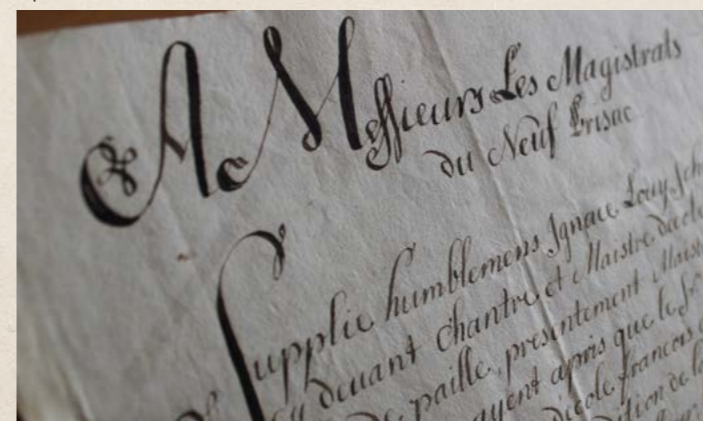 A Messieurs Les Magistrats
du Neuf Brisac
Supplie humblement Ignace Louy Sch
cy devant Chantre et Maistre decole
de paille, presentement Mais
ayent apris que le Sr
decole francois
dition de la